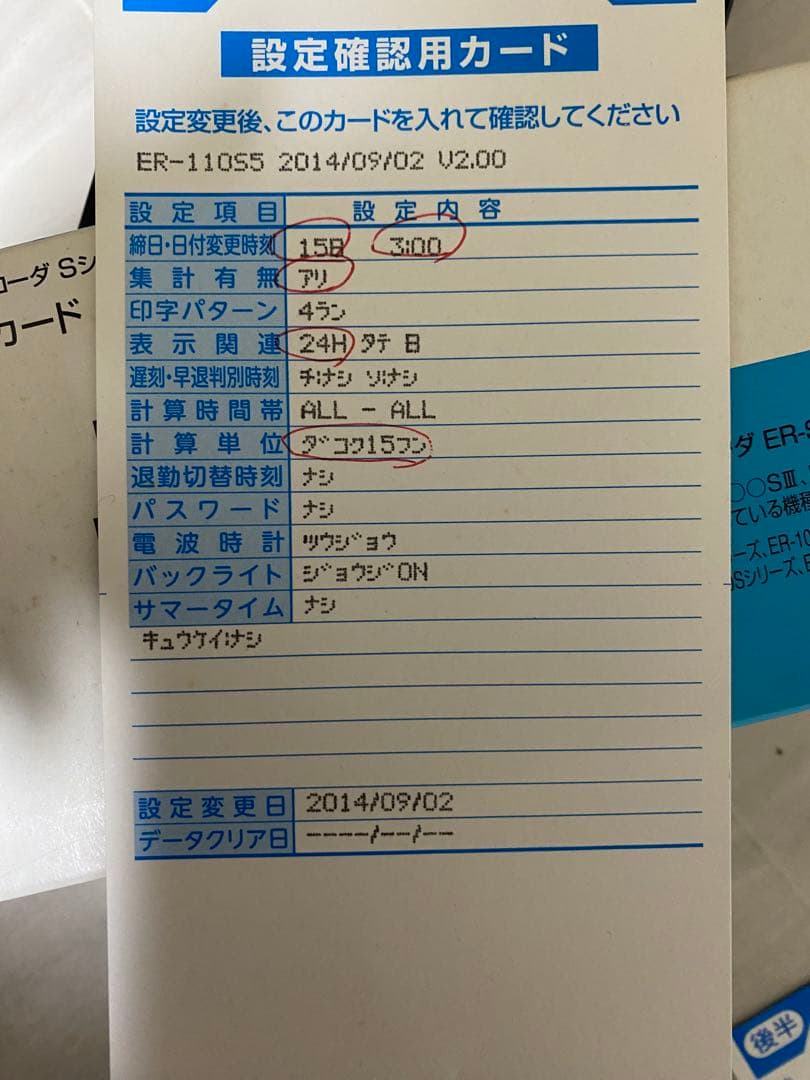 設定確認用カード
設定変更後、このカードを入れて確認してください
ER-110S5 2014/09/02 V2.00
設定項目 設定内容
締日・日付変更時刻 15日 3:00
集計有無 アリ
印字パターン 4ラン
表示関連 24H タテ B
遅刻・早退判別時刻 チ:ナシ ソ:ナシ
計算時間帯 ALL - ALL
計算単位 ダコク15フン
退勤切替時刻 ナシ
パスワード ナシ
電波時計 ツウジョウ
バックライト ジョウジON
サマータイム ナシ
キュウケイ:ナシ
設定変更日 2014/09/02
データクリア日 ----/--/--
コーダ Sシ
カード
ダ ER-S
○○SⅢ、
ている機種
ーズ、ER-10
Sシリーズ、E
後半